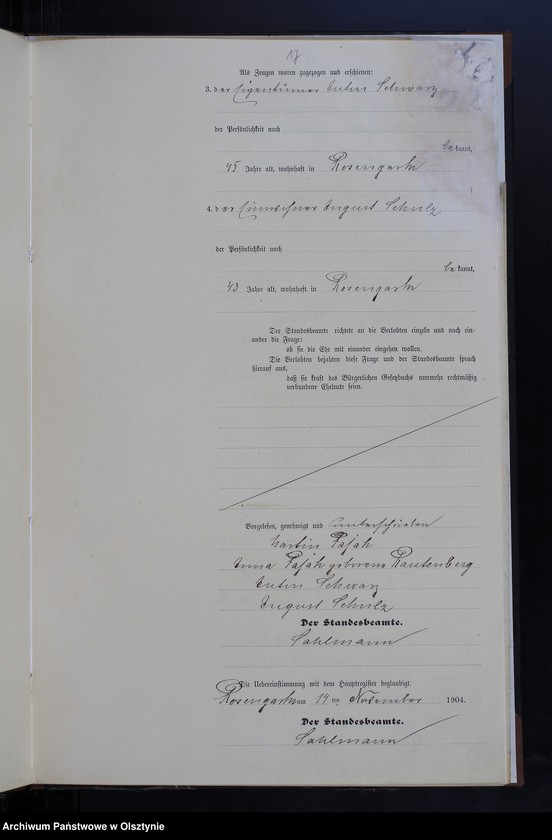 17
Als Zeugen waren zugezogen und erschienen:
3. der Eigentümer Anton Schwarz
der Persönlichkeit nach
bekannt,
45 Jahre alt, wohnhaft in Rosengarth
;
4. der Einwohner August Schulz
der Persönlichkeit nach
bekannt,
43 Jahre alt, wohnhaft in Rosengarth
Der Standesbeamte richtete an die Verlobten einzeln und nach ein-
ander die Frage:
ob sie die Ehe mit einander eingehen wollen.
Die Verlobten bejahten diese Frage und der Standesbeamte sprach
hierauf aus,
daß sie kraft des Bürgerlichen Gesetzbuchs nunmehr rechtmäßig
verbundene Eheleute seien.
Vorgelesen, genehmigt und unterschrieben
Martin Fajáh
Anna Fajáh geborene Rautenberg
Anton Schwarz
August Schulz
Der Standesbeamte.
Sahlmann
Die Uebereinstimmung mit dem Hauptregister beglaubigt.
Rosengarth am 14 ten November 1904.
Der Standesbeamte.
Sahlmann
Archiwum Państwowe w Olsztynie